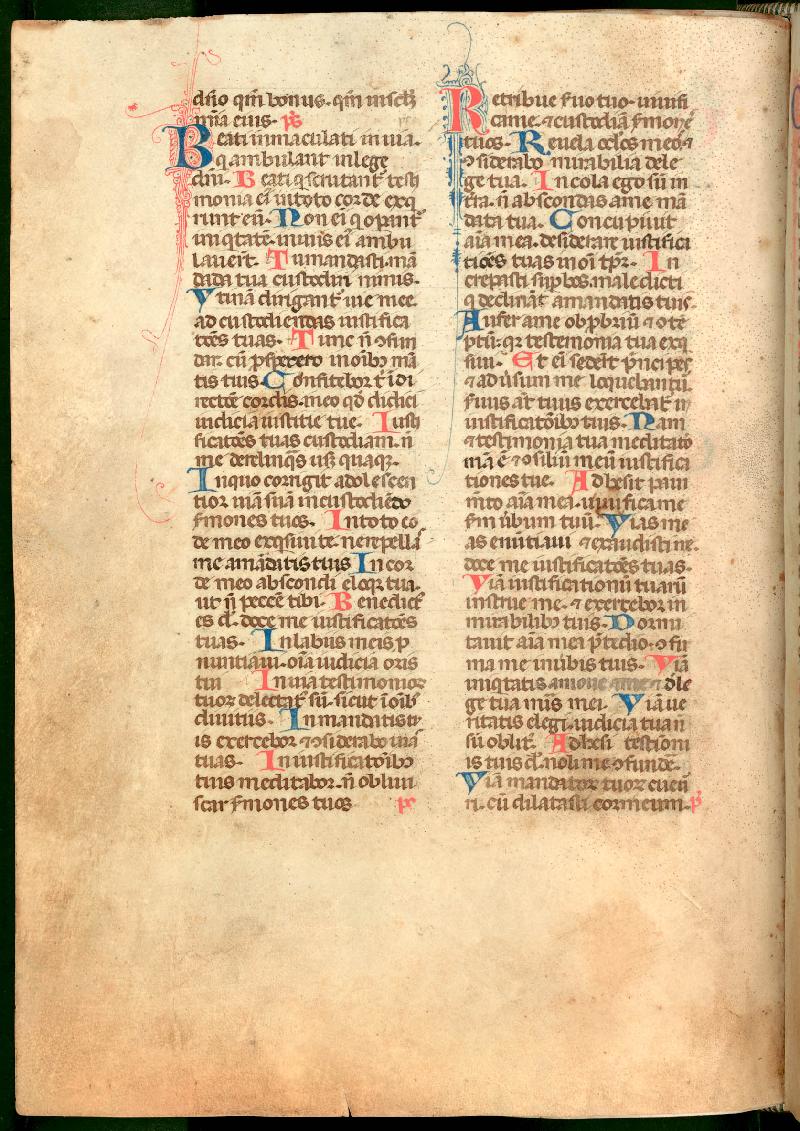 dńo qm̄ bonus. qm̄ in sclm̄
mīa eius. ps̄
Beati inmaculati in uia.
q ambulant in lege
dn̄i. Beati q scrutant̄ testi
monia eī in toto corde exq
runt eū. Non eī q opant̄
iniqtatē. in uiis eī ambu
lauert̄. Tu mandasti. mā
data tua custodiri nimis.
Vtinā dirigant̄ uie mee.
ad custodiendas iustifica
tōes tuas. Tunc n̄ ɔfun
dar. cū pspexero in oībꝫ mā
tis tuis. Confitebor t̄ i di
rectōe cordis. in eo qd̄ didici
iudicia iustitie tue. Iusti
ficatōes tuas custodiam. n̄
me derelinq̄s usqꝫ quaqꝫ.
In quo corrigit adolescen
tior uiā suā in custodiēdo
s̄mones tuos. In toto co
de meo exqsiui te. ne repellas
me a mādatis tuis In cor
de meo abscondi eloq̄ tua.
ut n̄ peccē tibi. Benedict̄
es d̄. doce me iustificatōes
tuas. In labiis meis p
nuntiaui. oīa iudicia oris
tui In uia testimonior
tuoꝝ delectat̄ sū. sicut ī oībꝫ
diuitiis. In mandatis tu
is exercebor ⁊ ɔsiderabo uiās
tuas. In iustificatōibꝫ
tuis meditabor. n̄ obliui
scar s̄mones tuos ps̄
Retribue s̄uo tuo. uiuifi
ca me. ⁊ custodiā s̄mones
tuos. Reuela oclos meos ⁊
ɔsiderabo mirabilia de le
ge tua. Incola ego sū in
t̄ra. n̄ abscondas a me mā
data tua. Concupiuit
aīa mea. desiderare iustifica
tiōes tuas in oī tpr̄. In
crepasti supbos. maledicti
q declināt a mandatis tuis.
Aufer a me obpbriū ⁊ ɔte
ptū. q̄ testimonia tua exq
siui. Et eī sedert̄ p̄ncipes
⁊ adūsum me loquebantur.
s̄uus aūt tuus exercebat̄ in
iustificatōibꝫ tuis. Nam
⁊ testimonia tua meditatio
mā ē. ⁊ ɔsiliū meū iustifica
tiones tue. Adhesit paui
m̄to aīa mea. uiuifica me
s̄m ūbum tuū. Vias me
as enūtiaui ⁊ exaudisti me.
doce me iustificatōes tuas.
Viā iustificationū tuarū
instrue me. ⁊ exercebor in
mirabilibꝫ tuis. Dormi
tauit aīa mea p̄ tedio. ɔfir
ma me in ūbis tuis. Viā
iniqtatis amoue a me ⁊ d̄ le
ge tua mis̄ mei. Viā ue
ritatis elegi. iudicia tua n̄
sū oblit̄. Adhesi testimoni
is tuis d̄. noli me ɔfundē.
Viā mandatoꝝ tuoꝝ cucur
ri. cū dilatasti cor meum. ps̄